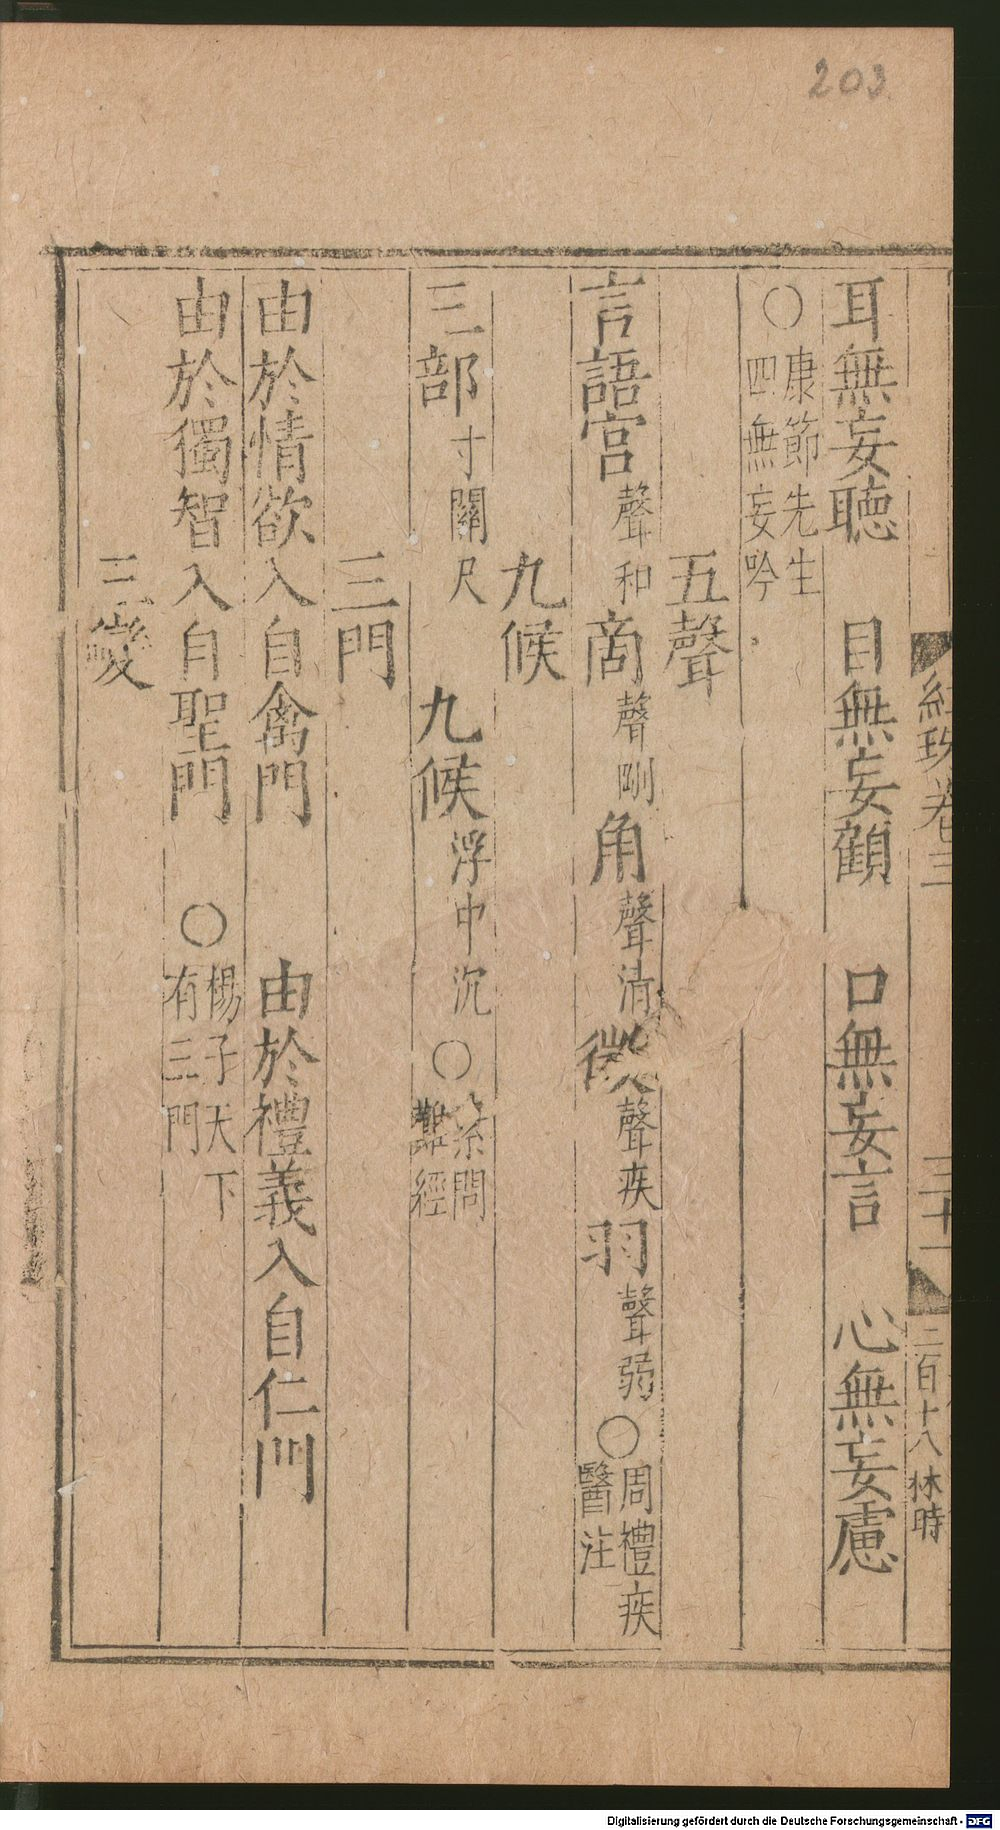 203
紅珠卷三
三十一
二百十八 林時
耳無妄聽 目無妄顧 口無妄言 心無妄慮
○康節先生四無妄吟
五聲
言語宮聲和商聲剛角聲清徵聲疾羽聲弱○周禮疾醫注
九候
三部寸關尺 九候浮中沉○素問難經
三門
由於情欲入自禽門 由於禮義入自仁門
由於獨智入自聖門 ○楊子天下有三門
三
Digitalisierung gefördert durch die Deutsche Forschungsgemeinschaft - DFG